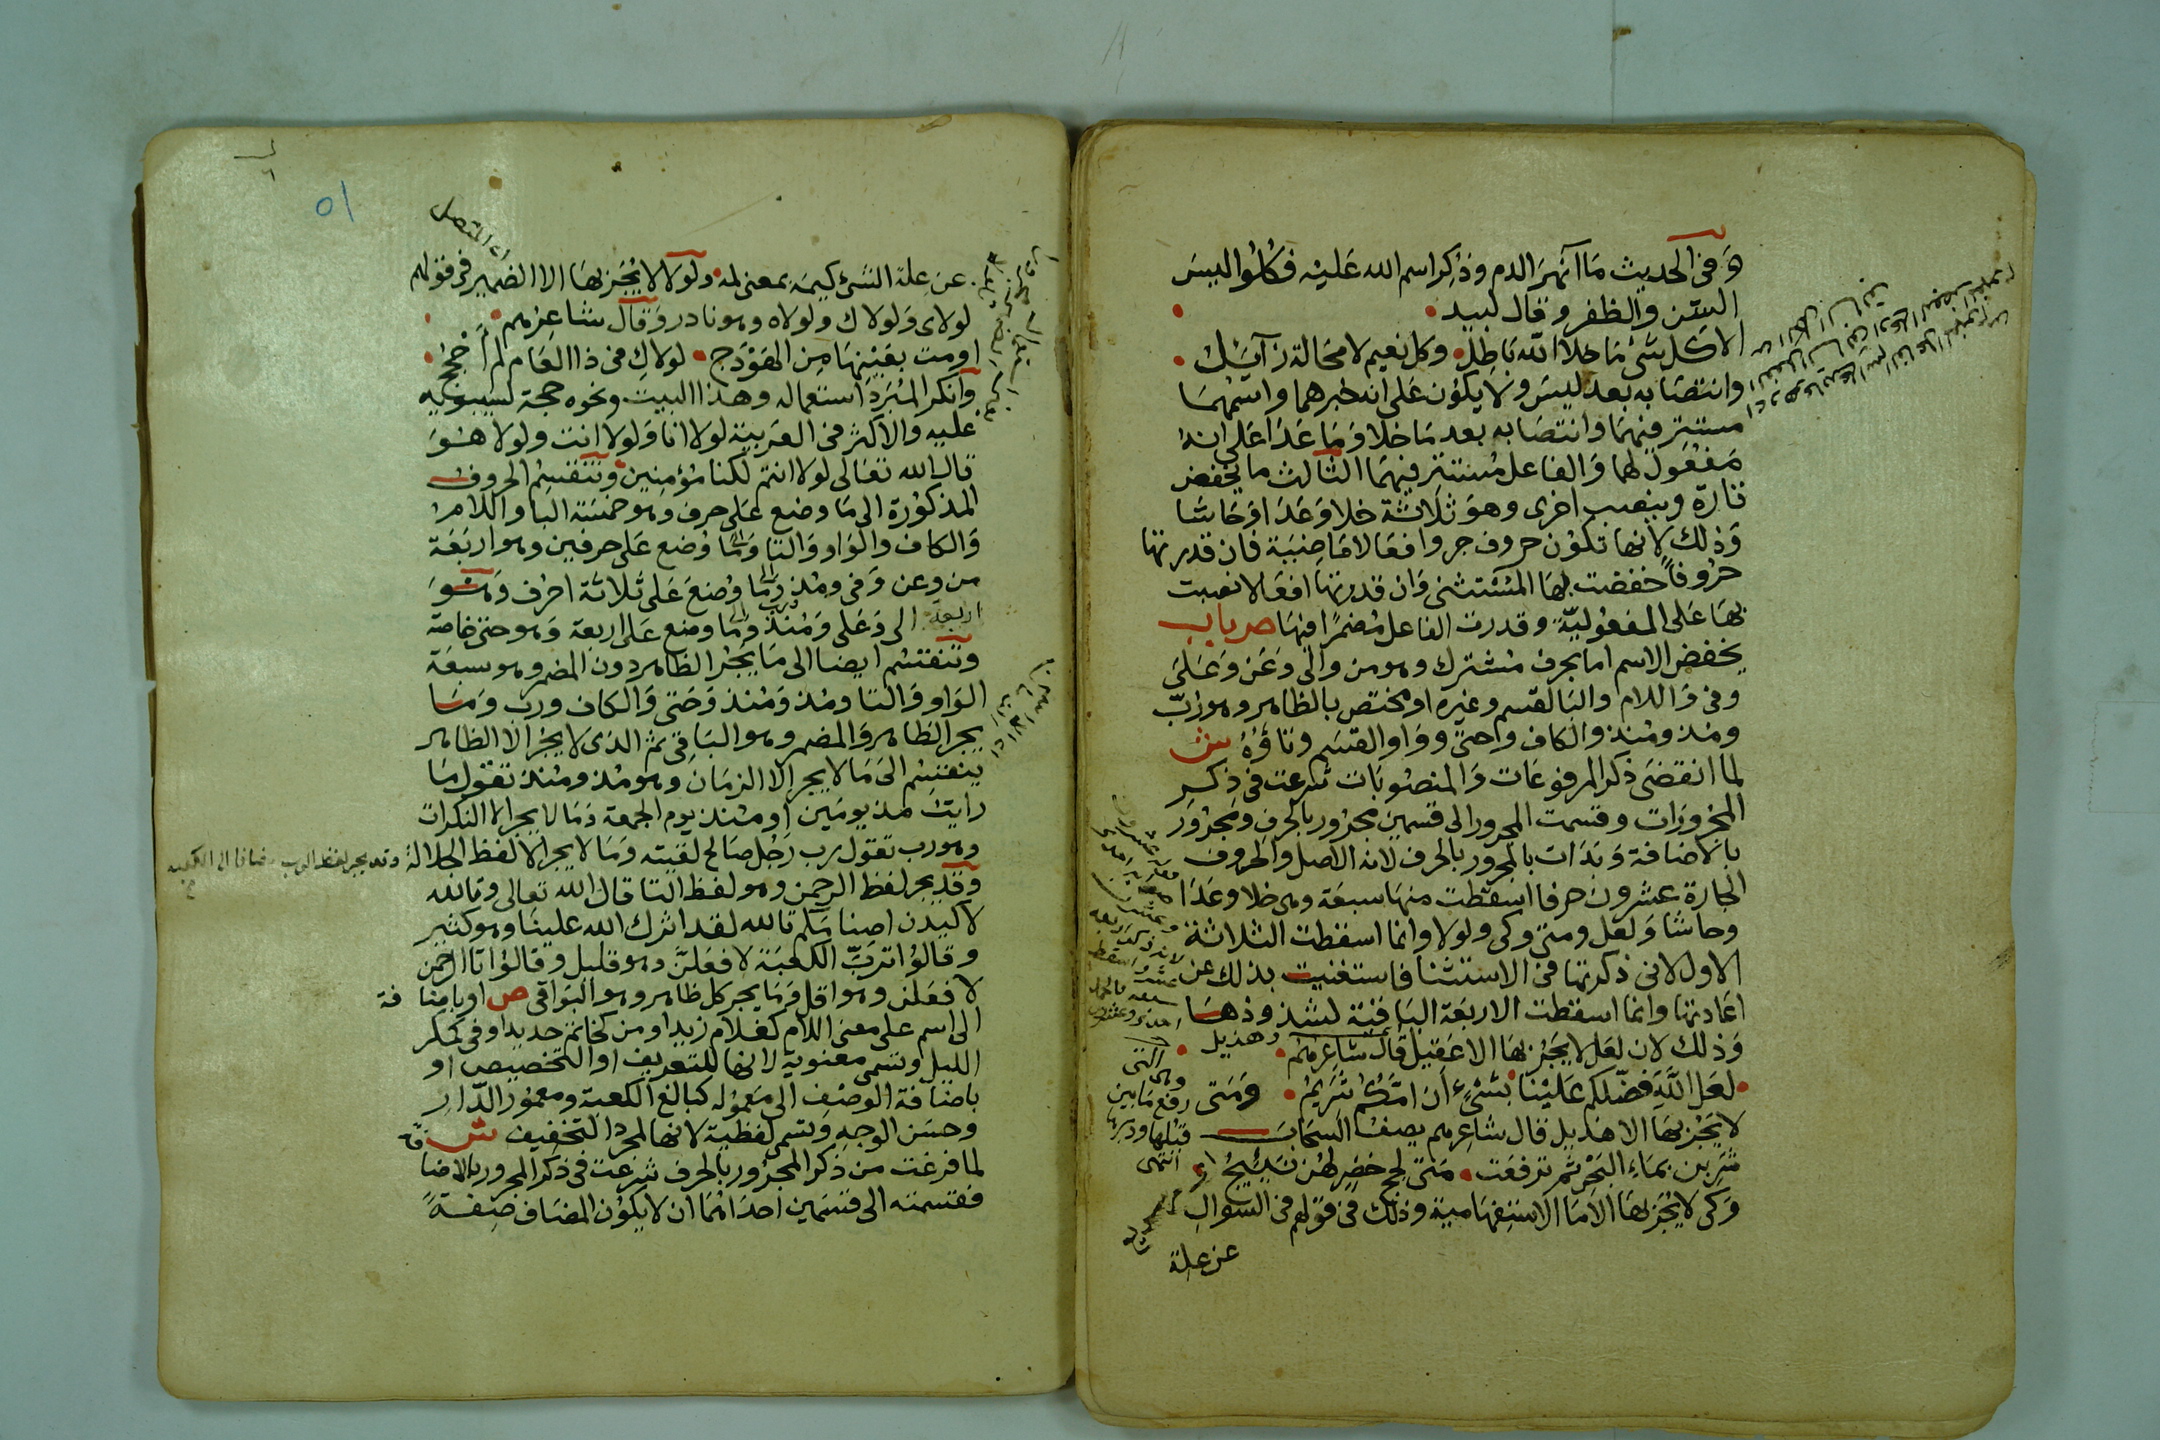 وَفى الحديث مَا انهَرَ الدم وذكِر اسم الله عَليْه فكُلُوا ليسَ
السِّن والظفر وقال لبيد
الاكل شئ مَا خلا الله باطِل وكل نعيم لا محَالة زائِل
وانتصَابه بعد ليسَ ولا يكوُن عَلى انه خبرهما واسمهمَا
مستتِر فيهمَا وانتصَابه بعد مَا خلا وَمَا عَدَا عَلى انه
مَفعُول لهَا وَالفاعل مُستتِر فيهمَا الثالث ما يخفض
تارة وينصب اخرى وهوَ ثلاثة خلا وَعَدَا وَحَاشَا
وَذلك لأنها تكوُن حروف جر وافعَالا مَاضِيَة فان قدرتها
حرُوفاً خفضت بهَا المُسْتثنى وَان قدرتها افعَالا نصبت
بهَا عَلى المفعُوليّة وقدرت الفاعل مُضمرًا فيهَا ص باب
يخفض الاسم اما بحرف مشترك وهو من والى وَعَن وَعَلىَ
وفى وَاللام والبَا للقسم وغيره او مختص بالظاهر وهو رُبّ
ومذ ومُنذ والكاف وحتى وَوَاو القسَم وتاؤهُ ش
لما انقضَى ذكر المرفوعَات وَالمنصُوبَات شرعت فى ذكر
المجرُورَات وقسمت المجرور الى قسمين مجرور بالحرف ومجرُورَ
بالاضافة وَبَدَات بالمجرُور بالحرف لانه الاصل والحروف
الجارة عشرون حرفا اسقطت منهَا سبعَة وهى خلا وعَدَا
وحاشَا وَلعَل ومتى وكى ولولا وانما اسقطت الثلاثة
الاول لانى ذكرتها فى الاستثنا فاستغنيت بذلك عن
اعَادتها وانما اسقطت الاربَعَة البَاقيَة لشذوذهَا
وَذلك لان لعَل لا يَجُر بهَا الا عَقِيل قال شاعِرهُم
لعَل اللَّهِ فضّلكم علَيْنا بشَىءٍ ان امّكمُ شَرِيمُ وَمَتى
لا يَجُر بهَا الا هذيل قال شاعِرهم يصف السحَاب
شرِبن بمَاءِ البَحْر ثم ترفعَت مَتىَ لجج خضرٍ لهُن نَئِيجُ
وَكى لا يُجَر بهَا الا مَا الاستفهَامية وَذلك فى قولهم فى السؤالِ
عن علة
وهذيل
اى التى
وهى
رفع مَا بين
قبلها وبرها
انتهى
٥١
اى المتصل
عن علة الشئ كيمَه بمعنى لمه ولولا لا يُجَر بهَا الا الضمِير فى قولهم
لولاى وَلولاك ولولاه وهو نادر وَقال شاعِرهم
اومت بعَيْنيهَا مِن الهَوْدَج لولاكِ فى ذا العَام لم أَحْجُج
وانكر المُبَرِّد استعماله وهذا البيت ونحوه حجة لسيبوَيه
عليه والاكثر فى العَربيّة لولا انا وَلولا انت ولولا هُوَ
قال الله تعَالى لولا انتم لكنا مُؤمنين وتنقسِم الحروف
المذكوُرة الى مَا وضع عَلى حرف وهو خمسَة البَا واللام
وَالكاف والوَاو وَالتا وَمَا وُضع عَلى حرفين وهو اربَعَة
من وعن وَفى ومُذ وَمَا وُضعَ عَلى ثلاثة احرُف وَهُوَ
اربعة الى وَعَلى وَمُنذُ ورب وَمَا وضع عَلى اربعة وَهو حتى خاصّة
وَتنقسم ايضا الى مَا يَجُر الظاهر دون المضمر وهو سبعَة
الوَاو وَالتا ومُذ وَمُنذ وَحَتى وَالكاف ورب وَمَا
يجر الظاهر وَالمضمر وهو البَاقِى ثم الذى لا يجُر الا الظاهر
ينقسِم الىَ مَا لا يجر الا الزمَان وهو مُذ ومُنذ تقول مَا
رايته مذ يومَين او منذ يوم الجمعة وَمَا لا يجر الا النكرات
وهو رب تقول رب رَجُل صَالح لقيته وَمَا لا يجر الا لفظ الجلالة وقد يجر لفظ الرب مضافا الى الكعبه
وقد يجر لفظ الرحمن وهو لفظ التا قال الله تعالى وتالله
لاكيدن اصنامَكم تالله لقد اثرك الله علينا وهو كثير
وقالوُا تربِّ الكعبَة لافعَلنّ وهو قليل وقالوُا تا الرحمن
لافعَلن وهو اقل وَمَا يجر كل ظاهر وهو البَواقى ص او باضا فة
الى اسم على معنى اللام كغلام زيد او من كخاتم حديد او فى كمكر
الليل وتسمى معنوية لانها للتعريف او التخصيص او
باضافة الوصف الى مَعمُوله كبالغ الكعبة ومعموُر الدّارِ
وحسَن الوجهِ وتسمى لفظية لانها لمجرد التخفيف ش
لما فرغت من ذكر المجرُور بالحرف شرَعت فى ذكر المجرور بالاضا
فقسمته الى قسَمين احدَاهُمَا ان لا يكوُن المضَاف صِفةً